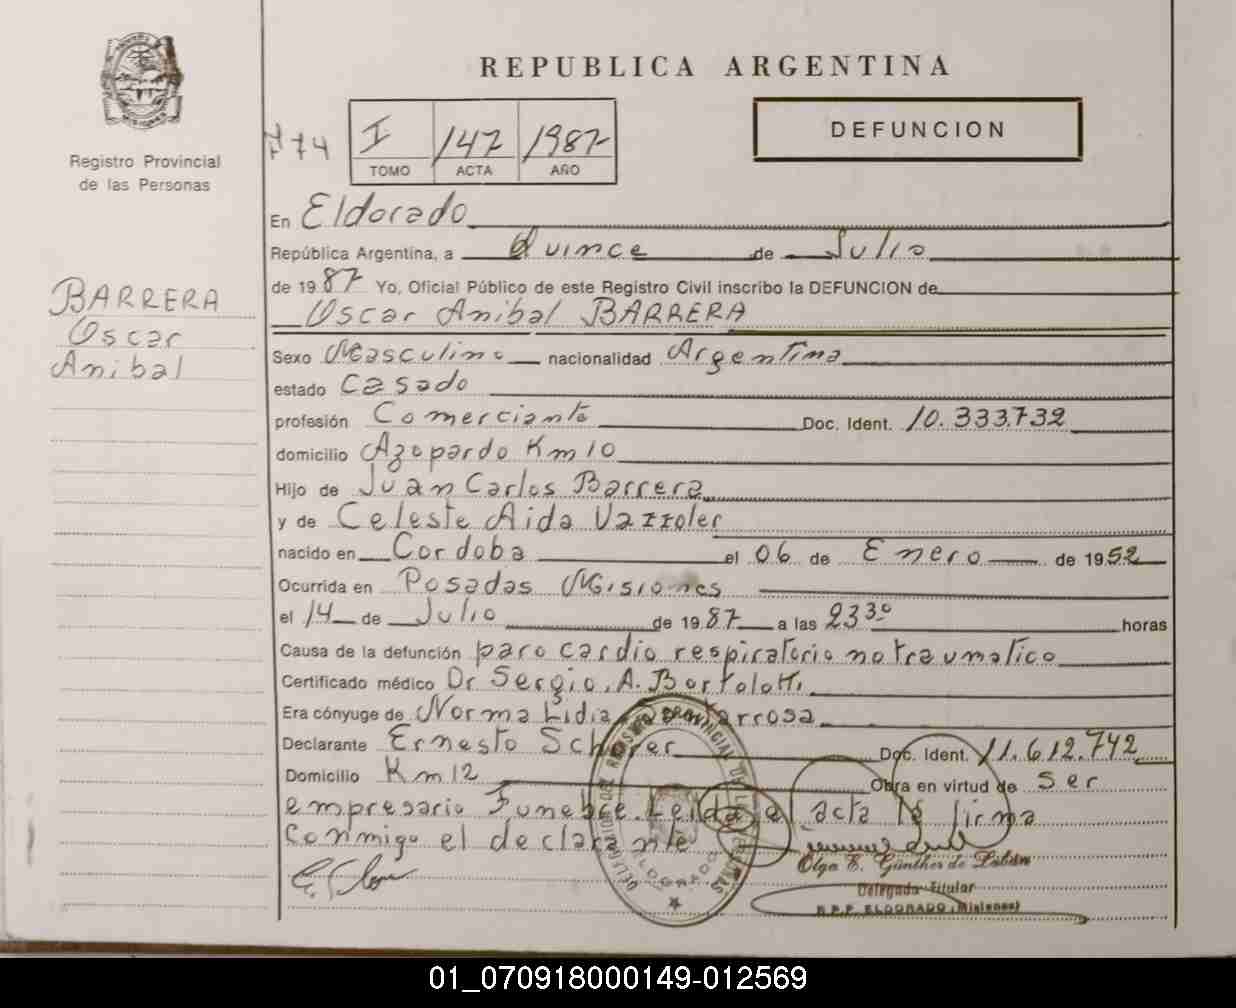 REPUBLICA ARGENTINA
Registro Provincial
de las Personas
I 147 1987
TOMO ACTA AÑO
DEFUNCION
BARRERA
Oscar
Anibal
En Eldorado
República Argentina, a Quince de Julio
de 1987 Yo, Oficial Público de este Registro Civil inscribo la DEFUNCION de
Oscar Anibal BARRERA
Sexo Masculino nacionalidad Argentina
estado Casado
profesión Comerciante Doc. Ident. 10.333.732
domicilio Azopardo Km 10
Hijo de Juan Carlos Barrera
y de Celeste Aida Vazzoler
nacido en Cordoba el 06 de Enero de 1952
Ocurrida en Posadas Misiones
el 14 de Julio de 1987 a las 23 30 horas
Causa de la defunción paro cardio respiratorio no traumatico
Certificado médico Dr Sergio. A. Bortolotti
Era cónyuge de Norma Lidia
Declarante Ernesto Doc. Ident. 11.612.742
Domicilio Km 12 Obra en virtud de Ser
empresario Funebre. Leida el acta la firma
conmigo el declarante
Olga E. Günther de
Delegada Titular
R.P.P. ELDORADO (Misiones)
01_070918000149-012569